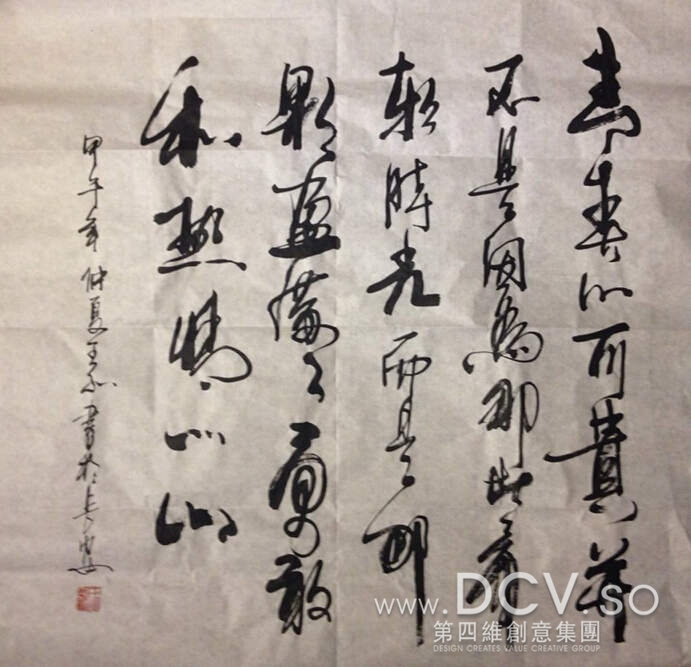 青春的可貴並
不是因為那些年
輕時光而是那
顆盈滿了勇敢
和熱情的心
甲午年仲夏王書於長安
www.DCV.so
第四維創意集團
DESIGN CREATES VALUE CREATIVE GROUP